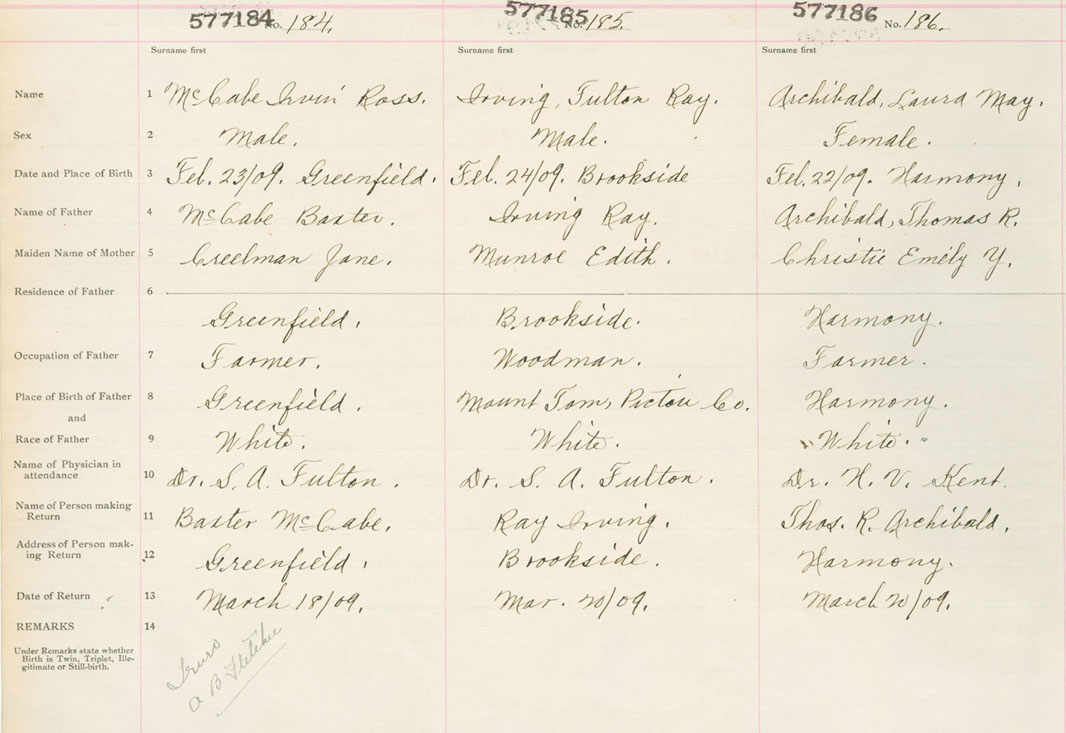 577184 No. 184. 577185 No. 185. 577186 No. 186.
Surname first Surname first Surname first
Name 1 McCabe Irvin Ross. Irving, Fulton Ray. Archibald, Laura May.
Sex 2 Male. Male. Female.
Date and Place of Birth 3 Feb. 23/09. Greenfield. Feb. 24/09. Brookside Feb. 22/09. Harmony.
Name of Father 4 McCabe Baxter. Irving Ray. Archibald, Thomas R.
Maiden Name of Mother 5 Creelman Jane. Munroe Edith. Christie Emily Y.
Residence of Father 6
Greenfield. Brookside. Harmony.
Occupation of Father 7 Farmer. Woodman. Farmer.
Place of Birth of Father 8 Greenfield. Mount Tom, Pictou Co. Harmony.
and
Race of Father 9 White. White. White.
Name of Physician in
attendance 10 Dr. S. A. Fulton. Dr. S. A. Fulton. Dr. H. V. Kent.
Name of Person making
Return 11 Baxter McCabe. Ray Irving. Thos. R. Archibald.
Address of Person mak-
ing Return 12 Greenfield. Brookside. Harmony.
Date of Return 13 March 18/09. Mar. 20/09. March 20/09.
REMARKS 14
Under Remarks state whether
Birth is Twin, Triplet, Ille-
gitimate or Still-birth.
Truro
A B Fletcher